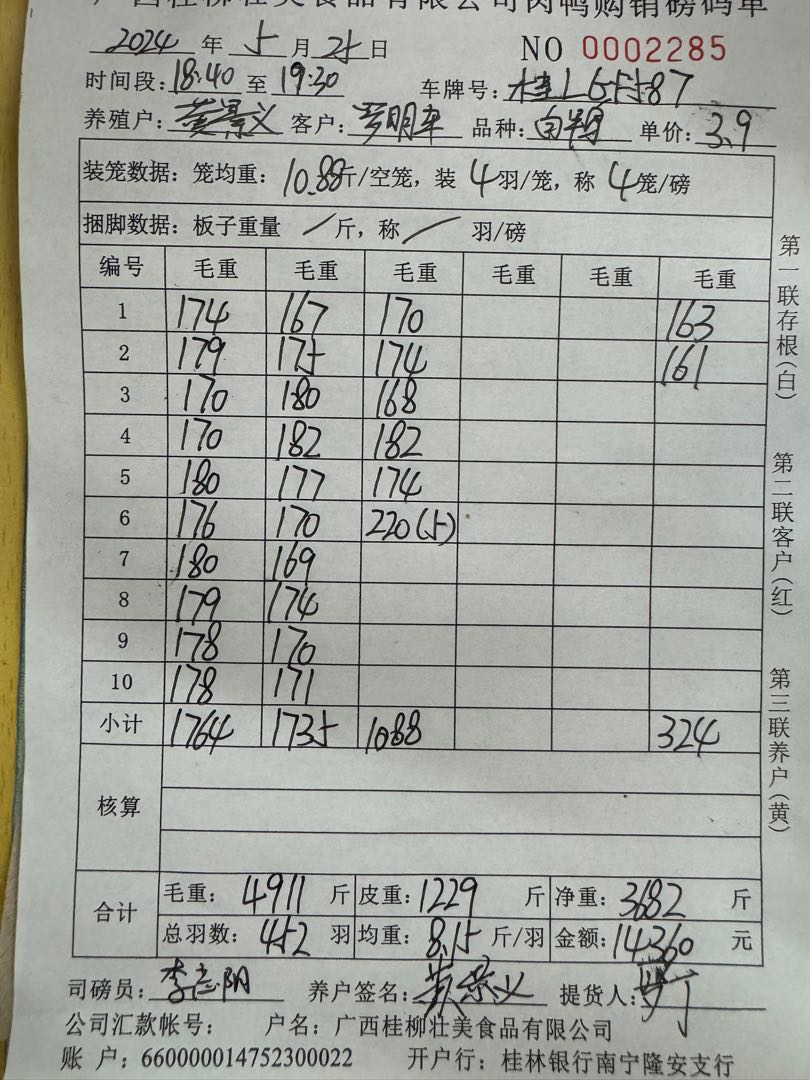 广西桂柳壮美食品有限公司肉鸭购销磅码单
2024 年 5 月 25 日 NO 0002285
时间段: 18:40 至 19:30 车牌号:
养殖户: 黄景义 客户: 罗明军 品种: 单价: 3.9
装笼数据: 笼均重: 10.88 斤/空笼, 装 4 羽/笼, 称 4 笼/磅
捆脚数据: 板子重量 / 斤, 称 / 羽/磅
编号 毛重 毛重 毛重 毛重 毛重 毛重
1 174 167 170 163
2 179 175 174 161
3 170 180 168
4 170 182 182
5 180 177 174
6 176 170 220(5)
7 180 169
8 179 174
9 178 170
10 178 171
小计 1764 1735 1088 324
核算
合计 毛重: 4911 斤 皮重: 1229 斤 净重: 3682 斤
总羽数: 452 羽 均重: 8.15 斤/羽 金额: 14360 元
司磅员: 李志阴 养户签名: 黄景义 提货人:
公司汇款帐号: 户名: 广西桂柳壮美食品有限公司
账 户: 660000014752300022 开户行: 桂林银行南宁隆安支行
第一联存根(白) 第二联客户(红) 第三联养户(黄)